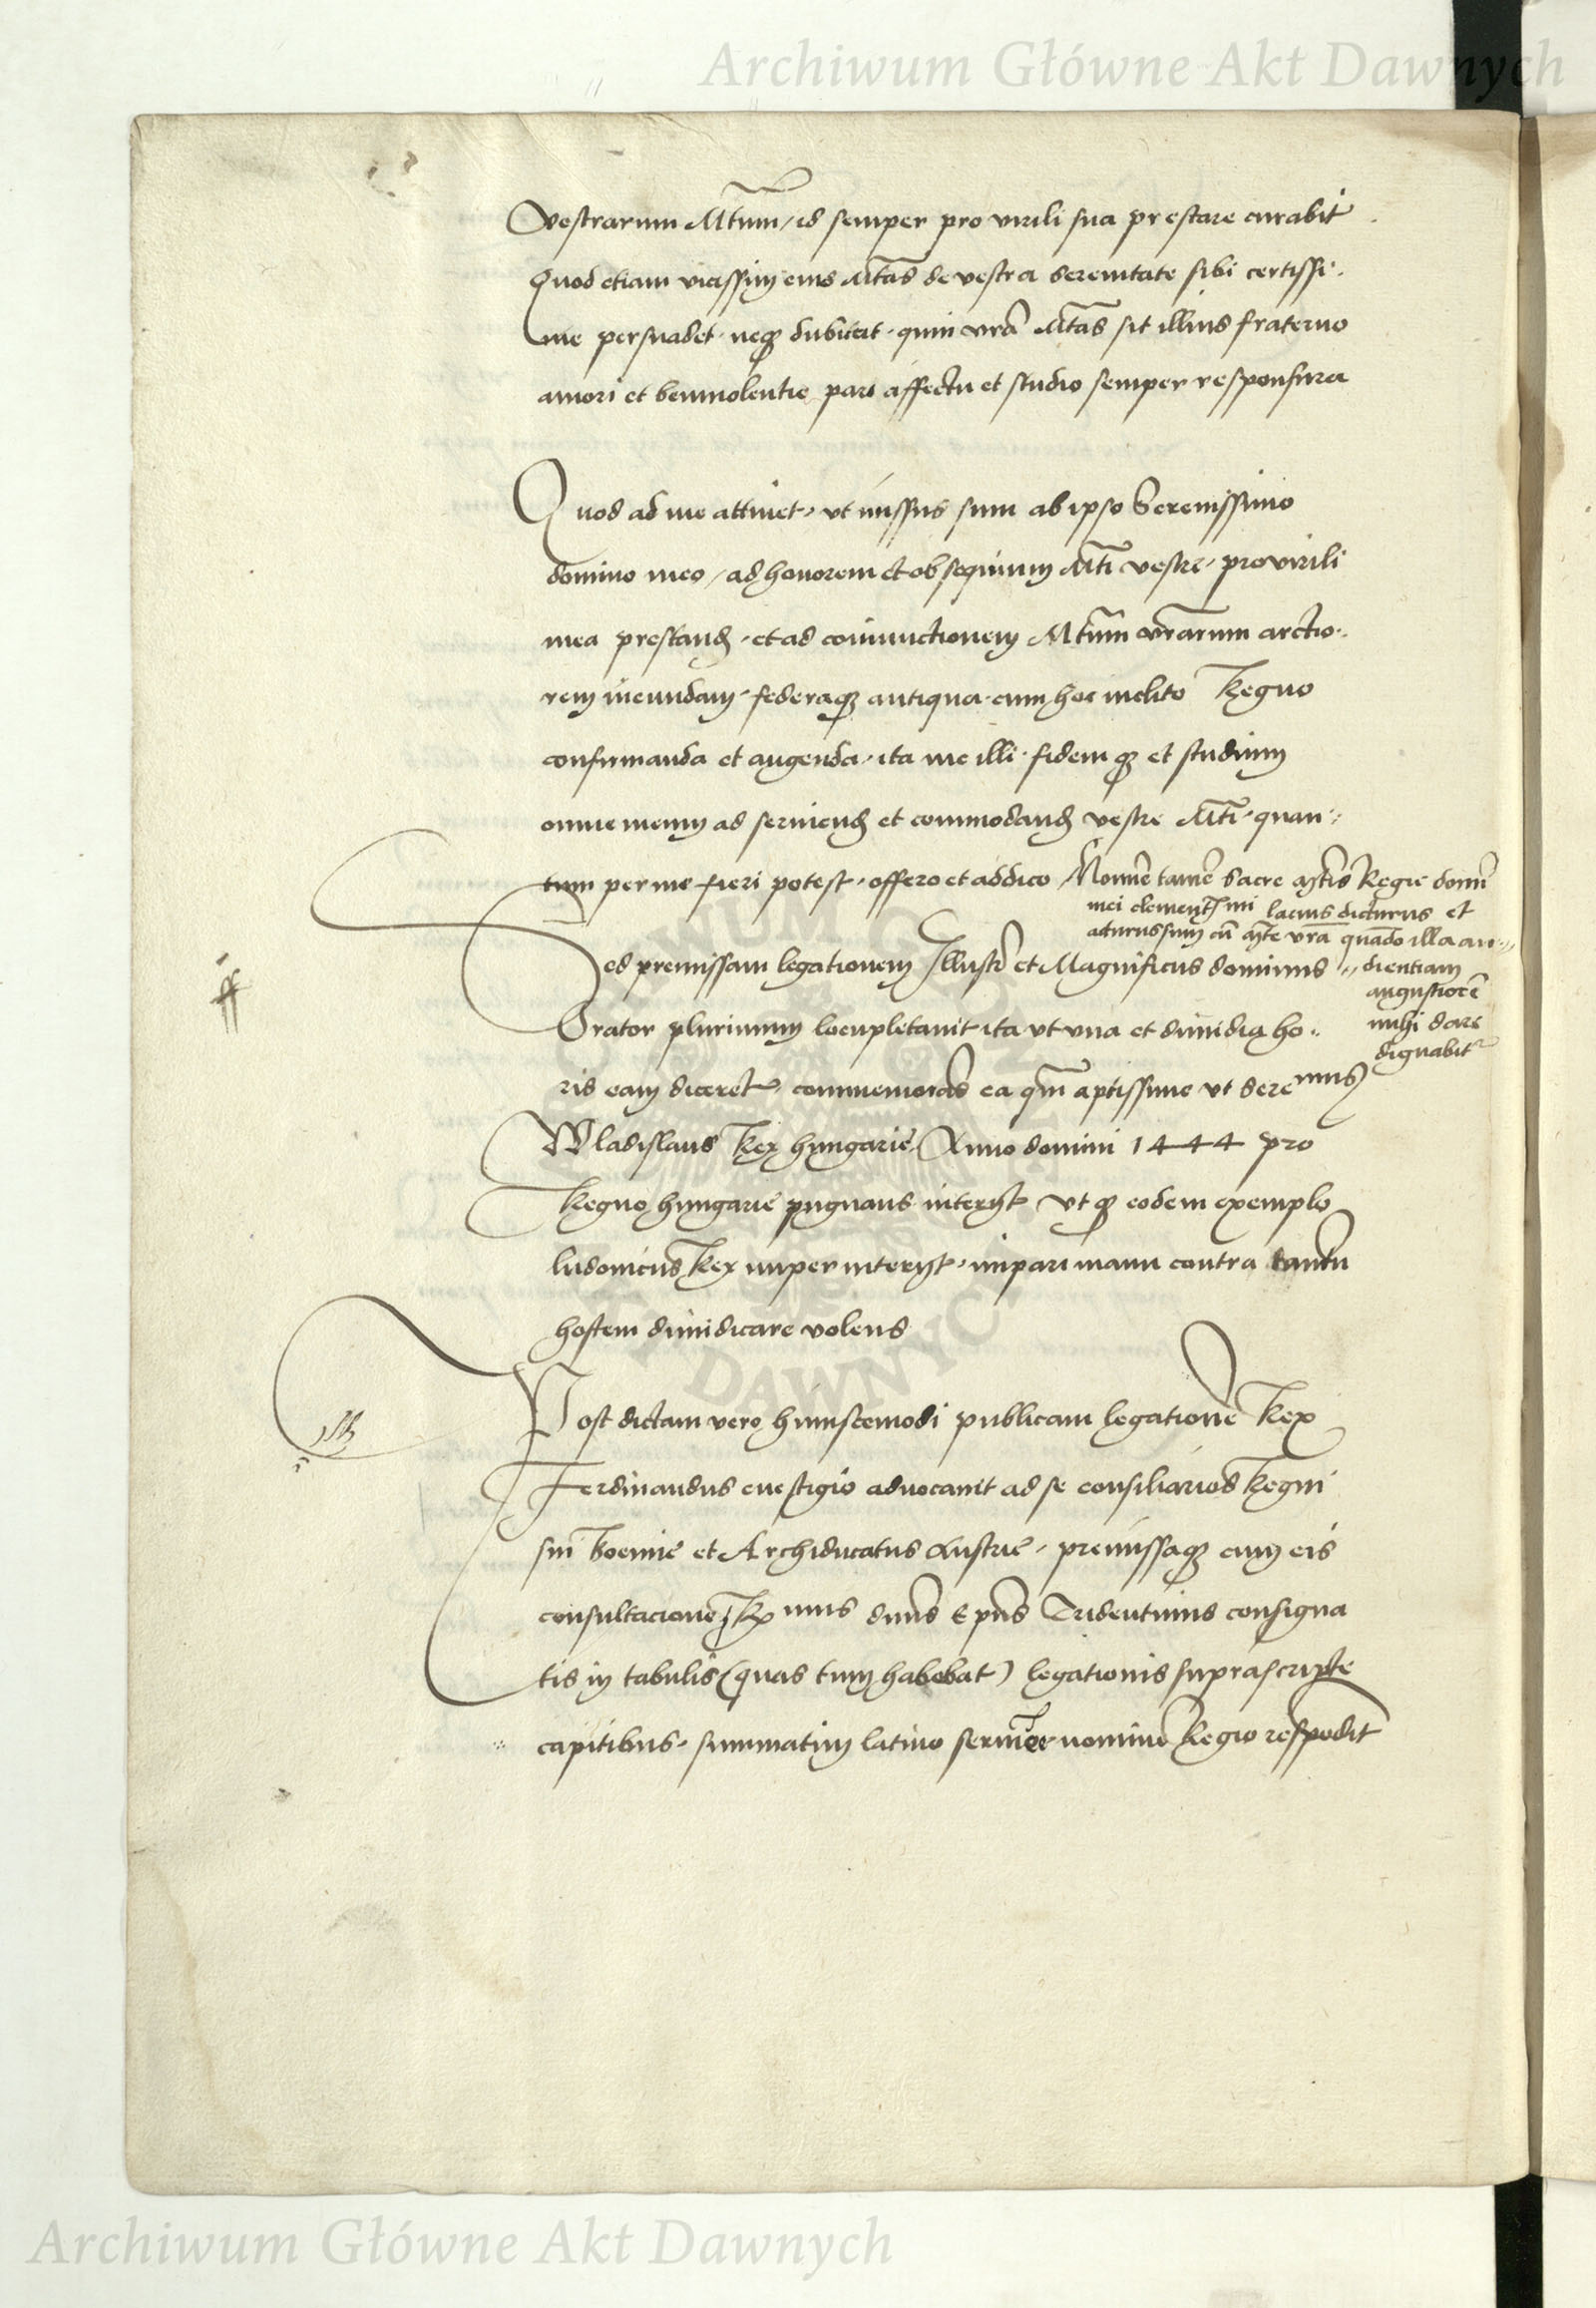 Archiwum Główne Akt Dawnych
Vestrarum Mtum, id semper pro virili sua prestare curabit.
Quod etiam vicissim eius Mtas de vestra serenitate sibi certissi-
me persuadet neque dubitat quin vra Mtas sit illius fraterno
amori et benivolentie pari affectu et studio semper responsura
Quod ad me attinet, ut missus sum ab ipso Serenissimo
domino meo, ad honorem et obsequium Mti vestre, pro virili
mea prestand, et ad coniunctionem Mtum vrarum arctio-
rem ineundam, federaque antiqua cum hoc inclito Regno
confirmanda et augenda, ita me illi, fidemque et studium
omne meum ad serviend et commodand vestre Mti quan-
tum per me fieri potest, offero et addico Nomine tamen Sacre Mtis Regie domini
mei clementmi latius dicturus et
acturus sum cum Mte vra quando illa au-
dientiam
angustiorem
mihi dare
dignabitur
Sed premissam legationem Illustris et Magnificus dominus
Orator plurimum locupletavit ita ut una et dimidia ho-
ris eam diceret, commemorans ea quam aptissime ut Serenmus
Wladislaus Rex Hungarie, Anno domini 1444 pro
Regno hungarie pugnans interijt utque eodem exemplo
ludovicus Rex nuper interijt, impari manu contra tantum
hostem dimidicare volens
Post dictam vero huiuscemodi publicam legationem Rex
Ferdinandus evestigio advocavit ad se consiliarios Regni
sui boemie et Archiducatus Austrie, premissaque cum eis
consultacione, Rmus dnus Epus Tridentinus consigna
tis in tabulis (quas tum habebat) legationis suprascripte
capitibus, summatim latino sermone nomine Regio respondit
Archiwum Główne Akt Dawnych